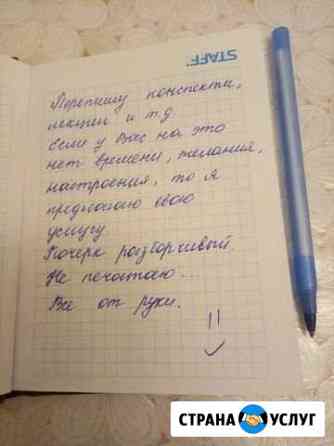 STAFF
Перепишу конспекти,
лекции и т.д
Если у Вас на это
нет времени, желания,
настроения, то я
предлагаю свою
услугу
Почерк розборчивый
Не печатаю...
Все от руки.
СТРАНА УСЛУГ